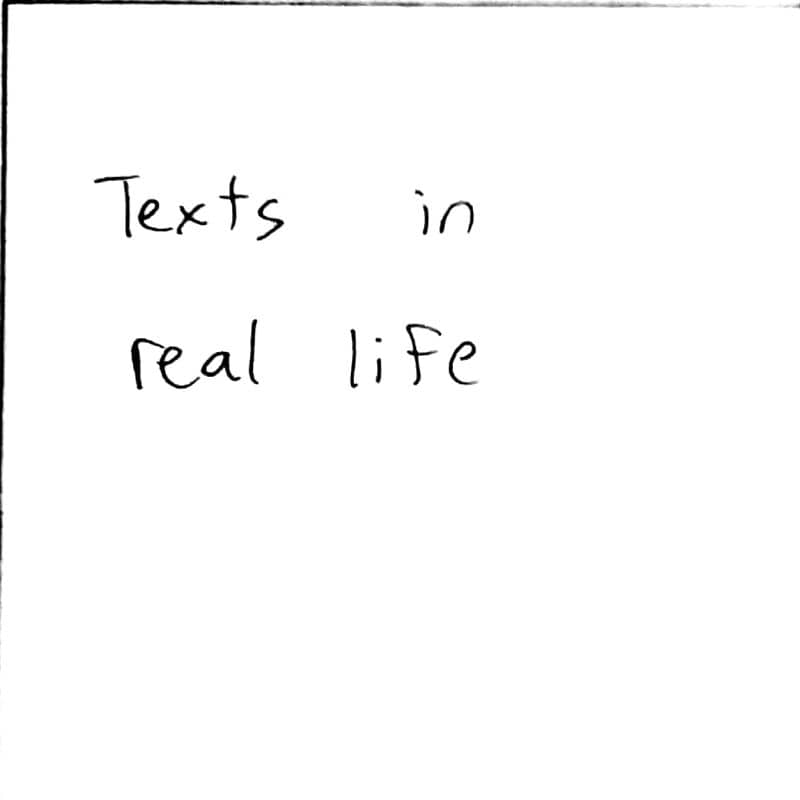 Texts in
real life